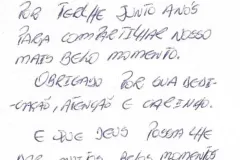 POR TERLHE JUNTO A NÓS
PARA COMPARTILHAR NOSSO
MAIS BELO MOMENTO.
OBRIGADO POR SUA DEDI-
CAÇÃO, ATENÇÃO E CARINHO.
E QUE DEUS POSSA LHE
DAR MUITOS BELOS MOMENTOS